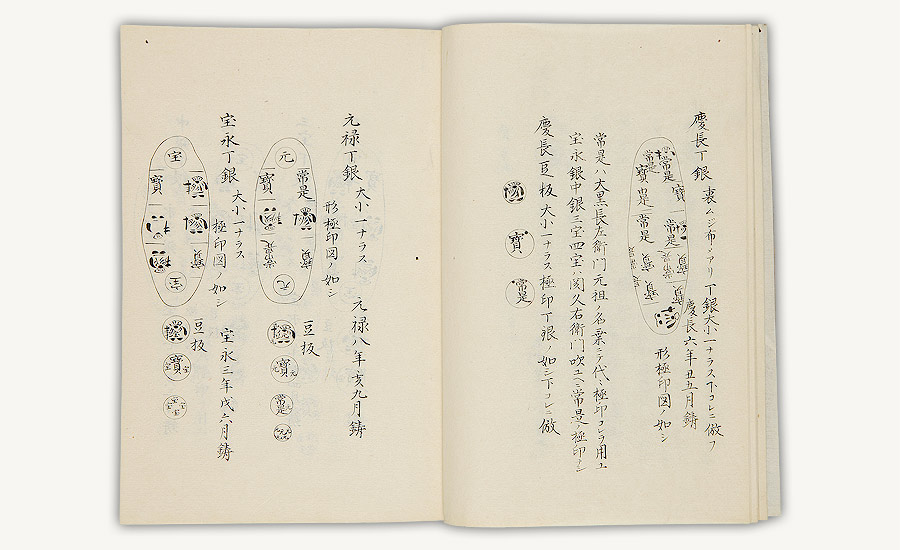 慶長丁銀 裏ムジ布メアリ 丁銀大小一ナラス下コレニ倣フ
慶長六年丑五月鋳
形極印図ノ如シ
常是 寶 常是 寶 常是 常是 寶 寶 寶 寶
常是ハ大黒長左衛門元祖ノ名票ニテ代々極印コレヲ用ユ
宝永銀中銀三宝四宝ハ関久右衛門吹ユヘニ常是ノ極印ナシ
慶長豆板大小一ナラス極印丁銀ノ如シ下コレニ倣
寶
常是
元禄丁銀 大小一ナラス 元禄八年亥九月鋳
形極印図ノ如シ
元 常是 寶 寶 常是 元
豆板
寶 元
常是
宝永丁銀 大小一ナラス 宝永三年戌六月鋳
極印図ノ如シ
宝 寶 寶 宝
豆板
寶 宝
宝 宝 宝